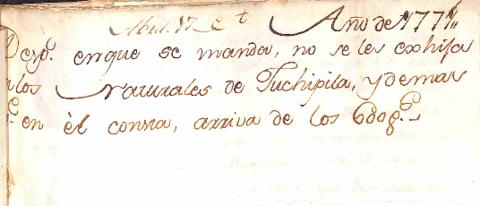 Abril 17 et Año de 1771
Desp.º en que se manda, no se les exhija
a los Naturales de Juchipila, y demas
q.e en èl consta, arriva de los 6 dog.s